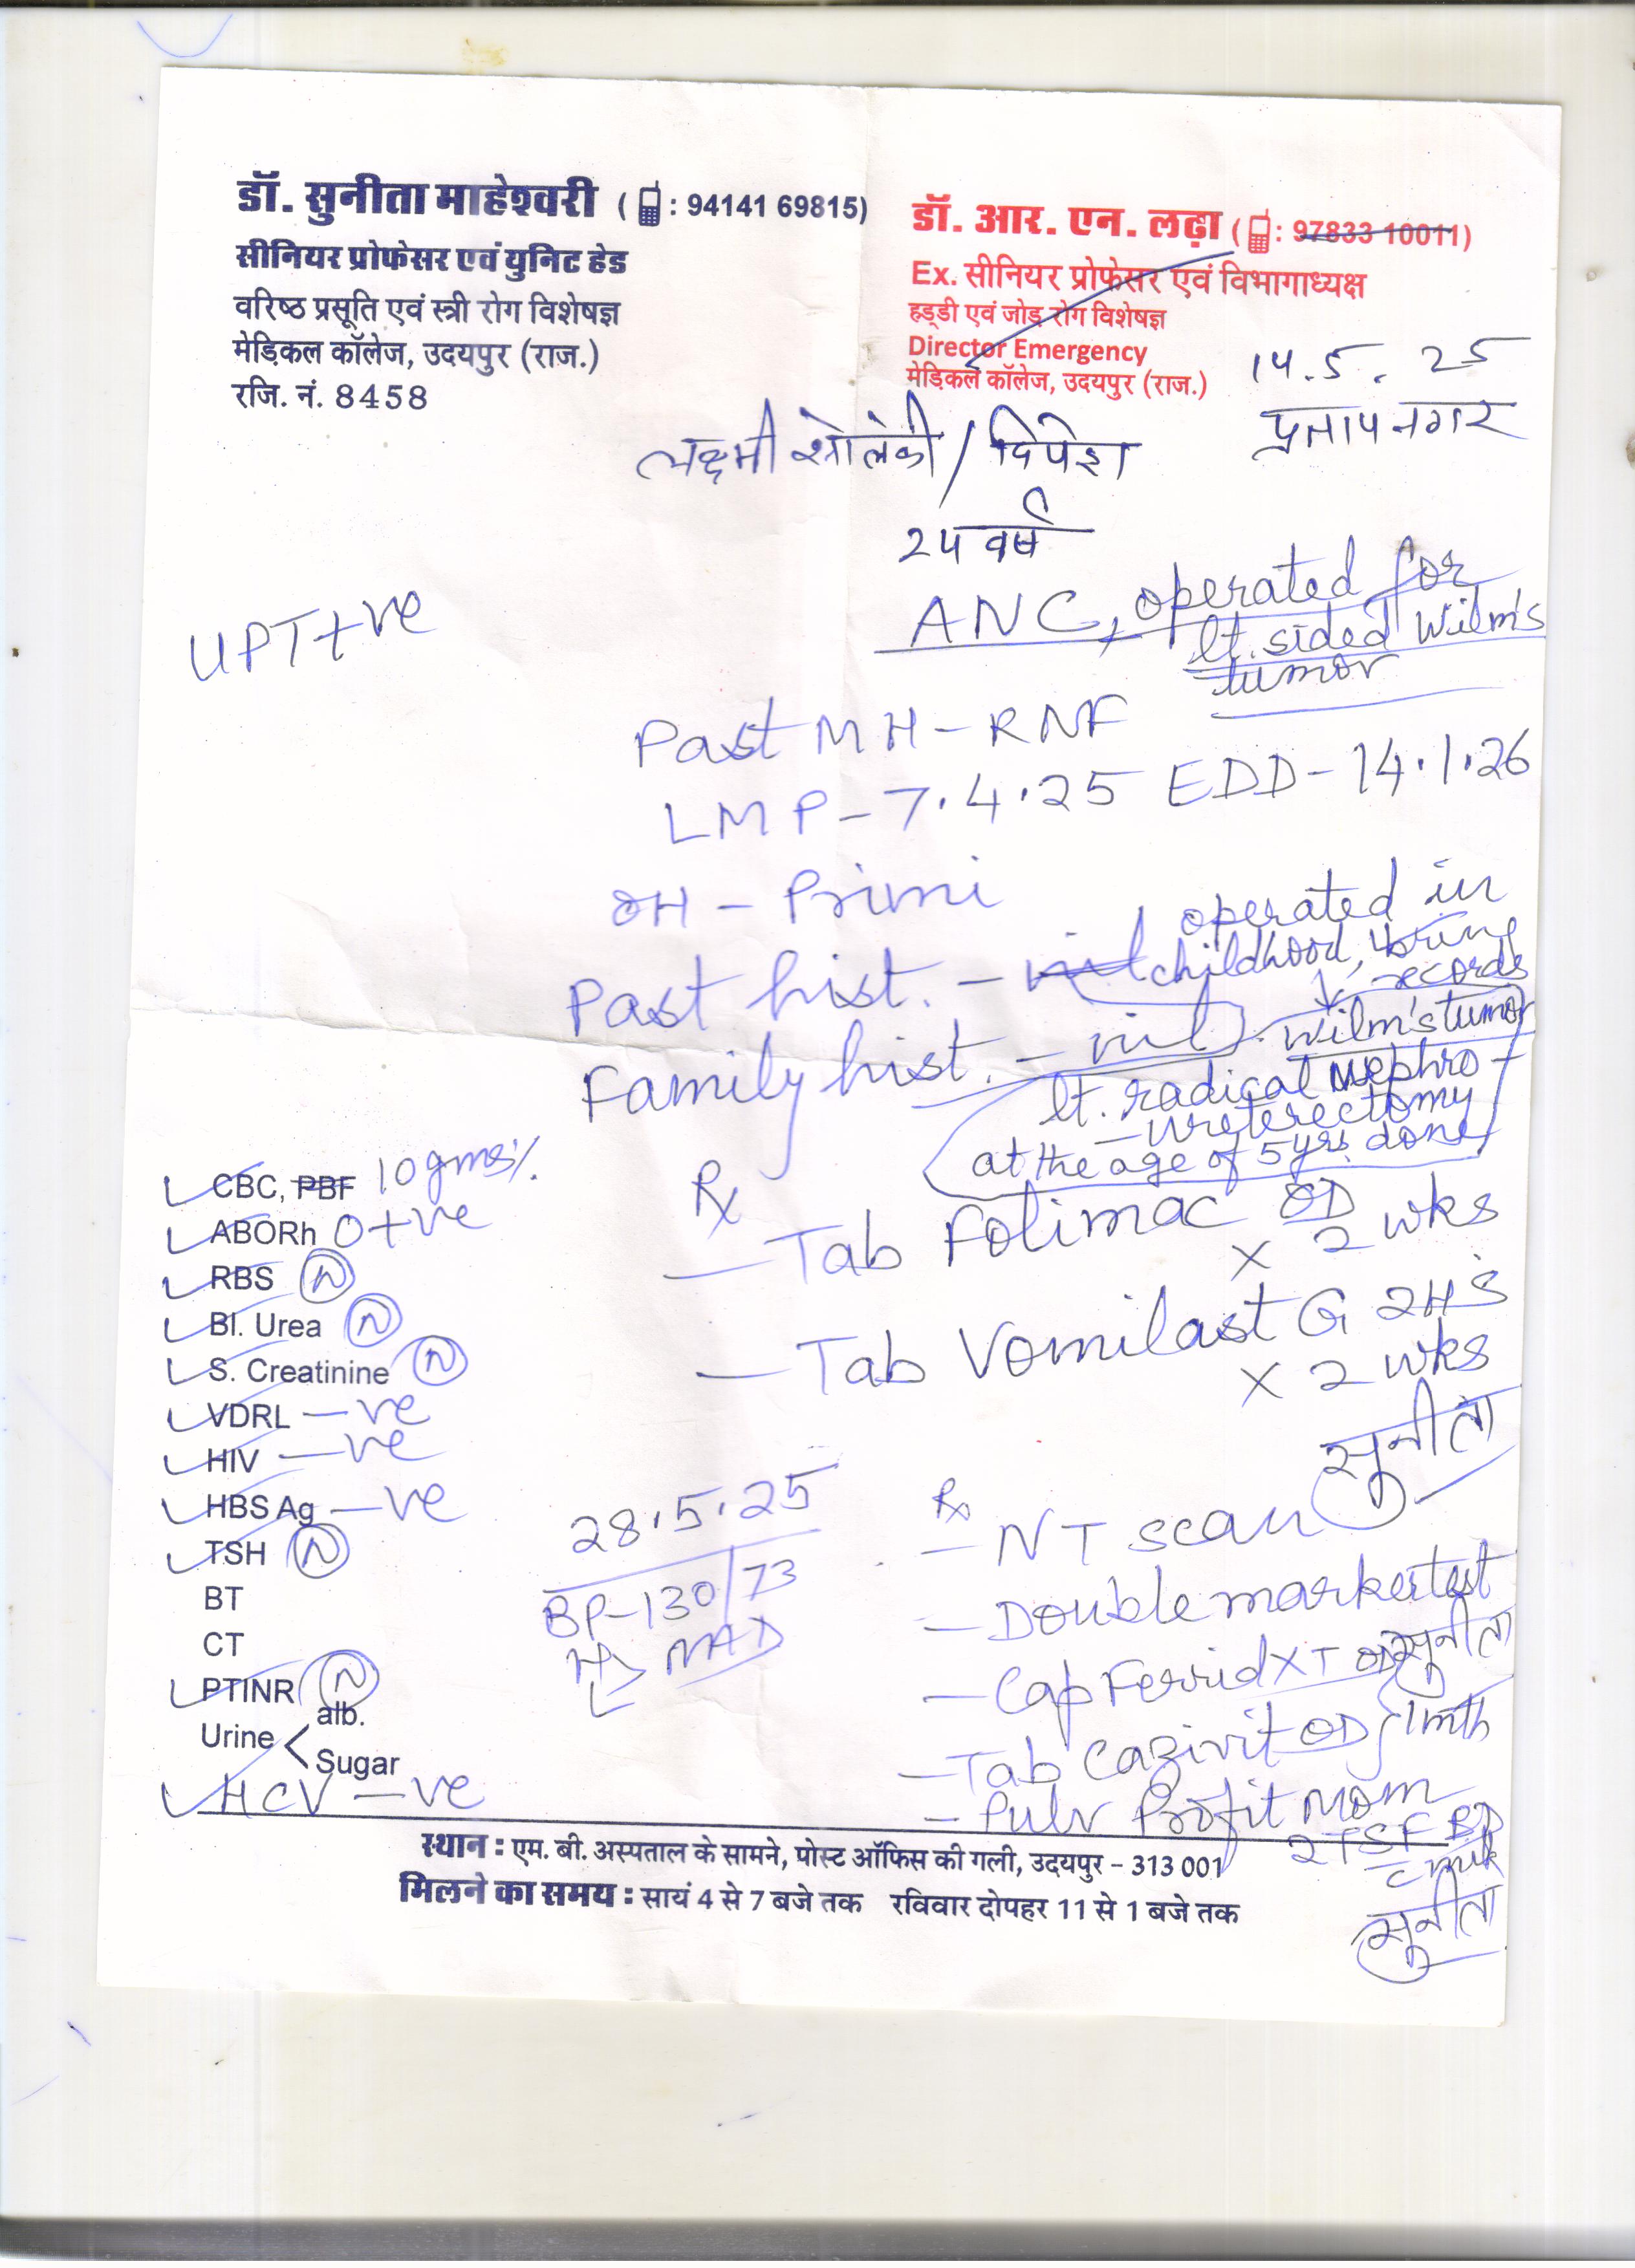 डॉ. सुनीता माहेश्वरी ( : 94141 69815)
सीनियर प्रोफेसर एवं युनिट हेड
वरिष्ठ प्रसूति एवं स्त्री रोग विशेषज्ञ
मेड़िकल कॉलेज, उदयपुर (राज.)
रजि. नं. 8458
डॉ. आर. एन. लढ़ा ( : 97833 10011)
Ex. सीनियर प्रोफेसर एवं विभागाध्यक्ष
हड्डी एवं जोड़ रोग विशेषज्ञ
Director Emergency
मेड़िकल कॉलेज, उदयपुर (राज.)
14.5.25
प्रतापनगर
लक्ष्मी सोलंकी / दिपेश
24 वर्ष
UPT+ve
ANC, operated for
lt. sided Wilm's
tumor
Past MH - RNF
LMP - 7.4.25 EDD - 14.1.26
OH - Primi
Past hist. - nil operated in
childhood, bring
records
Family hist. - nil
Wilm's tumor
lt. radical nephro-
ureterectomy
at the age of 5yrs. done
Rx
- Tab Folimac OD
x 2 wks
- Tab Vomilast G 2HS
x 2 wks
सुनीता
CBC, PBF 10gms%
ABORh O+ve
RBS N
Bl. Urea N
S. Creatinine N
VDRL -ve
HIV -ve
HBS Ag -ve
TSH N
BT
CT
PTINR N
Urine < alb.
Sugar
HCV -ve
28.5.25
BP-130/73
NAD
Rx
- NT scan
- Double marker test
सुनीता
- Cap Ferrid XT OD
- Tab Cazivit OD 1mth
- Pulv Profit Mom
2 TSF BD
c milk
सुनीता
स्थान : एम. बी. अस्पताल के सामने, पोस्ट ऑफिस की गली, उदयपुर - 313 001
मिलने का समय : सायं 4 से 7 बजे तक रविवार दोपहर 11 से 1 बजे तक